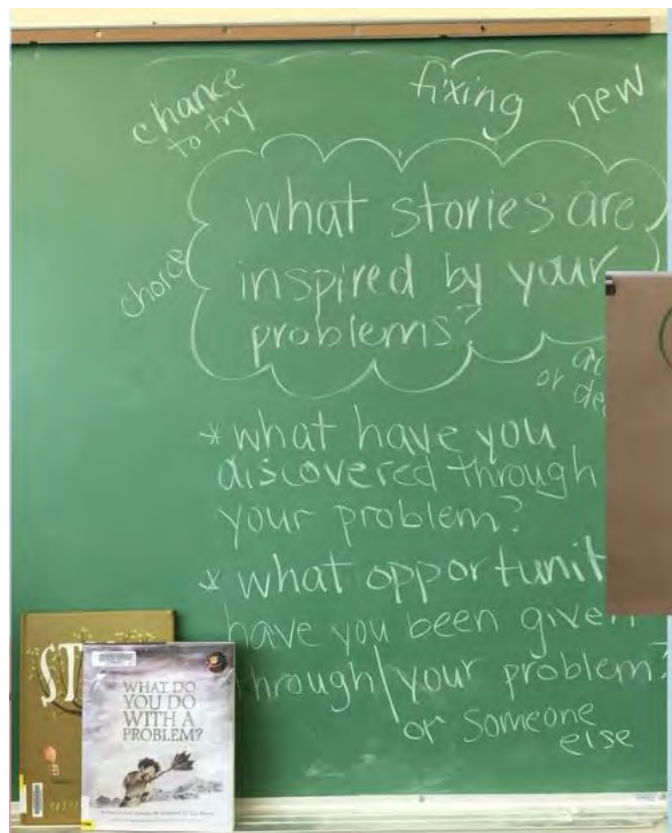 chance
to try
fixing
new
choice
what stories are
inspired by your
problems?
or
* what have you
discovered through
your problem?
* what opportunit
have you been given
through your problem?
or someone
else
ST
WHAT DO
YOU DO
WITH A
PROBLEM?